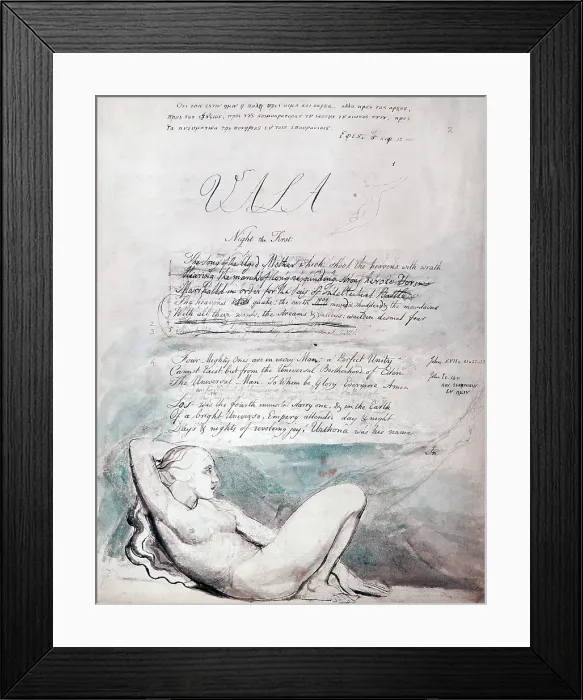 Οτι ουκ εστιν ημιν η παλη προς αιμα και σαρκα, αλλα προς τας αρχας,
προς τας εξουσιας, προς τους κοσμοκρατορας του σκοτους του αιωνος τουτου, προς
τα πνευματικα της πονηριας εν τοις επουρανιοις.
Εφες: 12
2
1
VALA
Night the First
The Song of the Aged Mother which shook the heavens with wrath
Hearing the march of long resounding strong heroic Verse
Marshalld in order for the day of Intellectual Battle
The heavens quake: the earth moved & shudderd & the mountains
With all their woods, the streams & valleys: waild in dismal fear
4
Four Mighty Ones are in every Man: a Perfect Unity
John XVII c. 21 & 22 & 23
Cannot Exist but from the Universal Brotherhood of Eden
John I c. 14 v
The Universal Man. To Whom be Glory Evermore Amen
και εσκηνωσεν
εν ημιν
Los was the fourth immortal starry one, & in the Earth
Of a bright Universe, Empery attended day & night
Days & nights of revolving joy, Urthona was his name
In